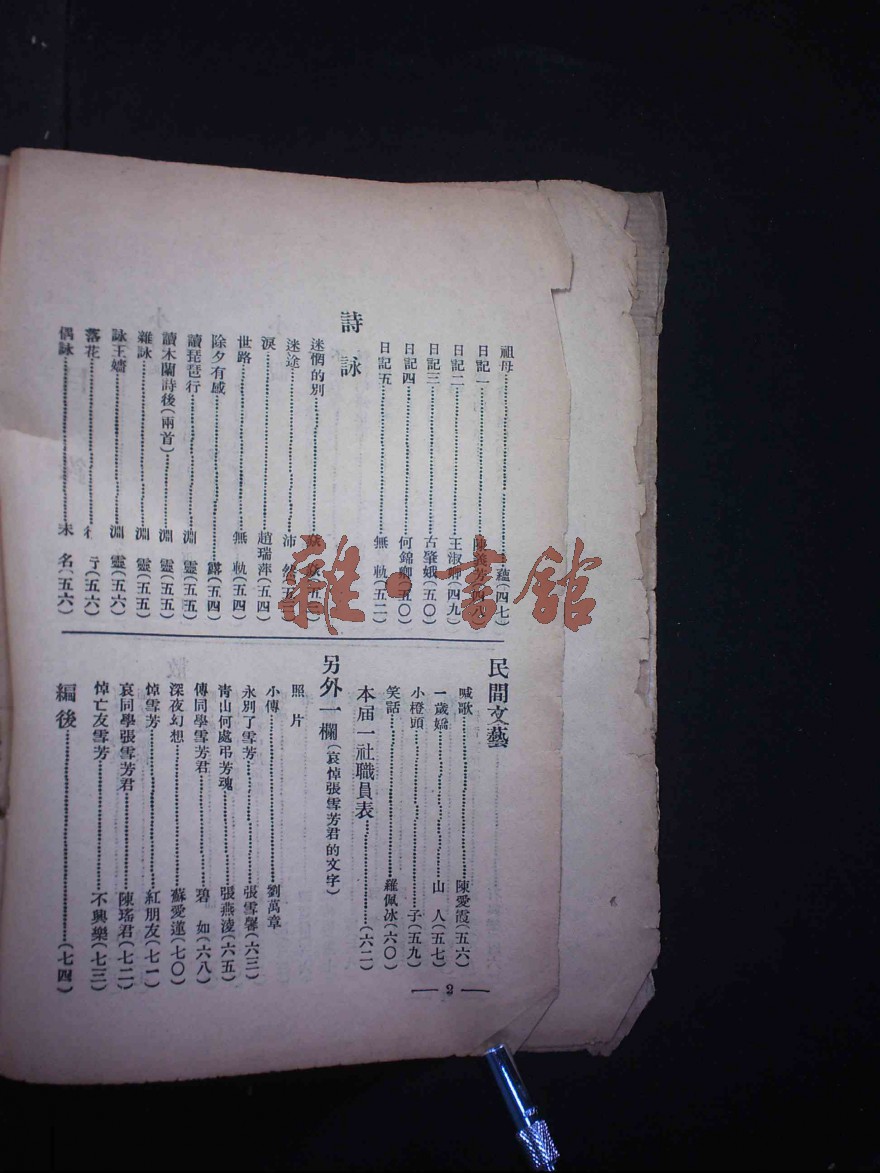 祖母……蘊(四七)
日記一……陳義芳(四八)
日記二……王淑卿(四九)
日記三……古肇娥(五〇)
日記四……何錦卿(五〇)
日記五……無 軌(五二)
詩詠
迷惘的別
迷途……沛 然
淚……趙瑞萍(五四)
世路……無 軌(五四)
除夕有感……(五四)
讀琵琶行……淵 靈(五五)
讀木蘭詩後(兩首)……淵 靈(五五)
雜詠……淵 靈(五五)
詠王嬙……淵 靈(五六)
落花……(五六)
偶詠……未 名(五六)
民間文藝
喊歌……陳愛霞(五六)
一歲嬌……山 人(五七)
小橙頭……子(五九)
笑話……羅佩冰(六〇)
本屆一社職員表……(六二)
另外一欄(哀悼張雪芳君的文字)
照片
小傳……劉萬章
永別了雪芳……張雪馨(六三)
青山何處弔芳魂……張燕淩(六五)
傳同學雪芳君……碧 如(六八)
深夜幻想……蘇愛蓮(七〇)
悼雪芳……紅朋友(七一)
哀同學張雪芳君……陳瑤君(七二)
悼亡友雪芳……不興樂(七三)
編後……(七四)
— 2 —
雜書館